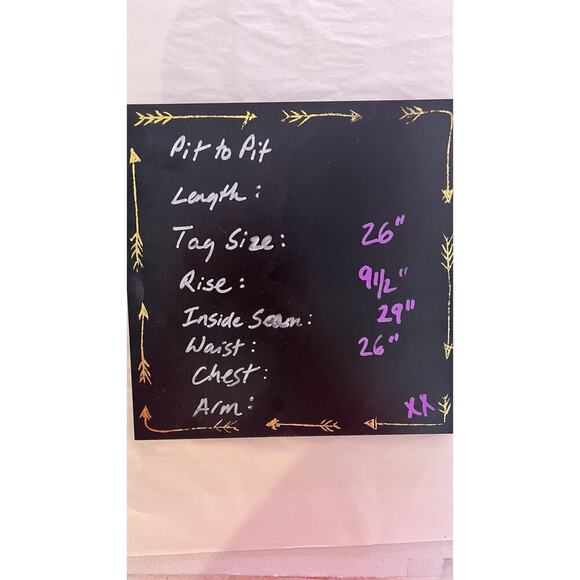 Pit to Pit
Length:
Tag Size: 26"
Rise: 9 1/2"
Inside Seam: 29"
Waist: 26"
Chest:
Arm: XX